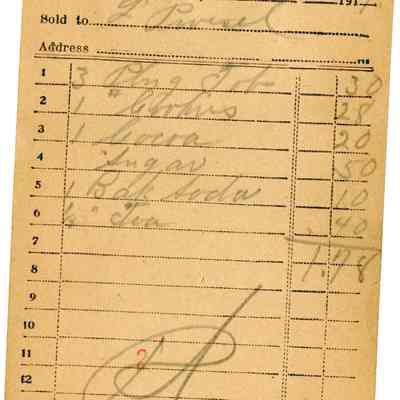 191
Sold to L Purcel
Address
1 3 Plug Tob 30
2 1 " Cookies 28
3 1 Cocoa 20
4 Sugar 50
5 1 Bak Soda 10
6 ½ " Tea 40
7 1.78
8
9
10
11
12